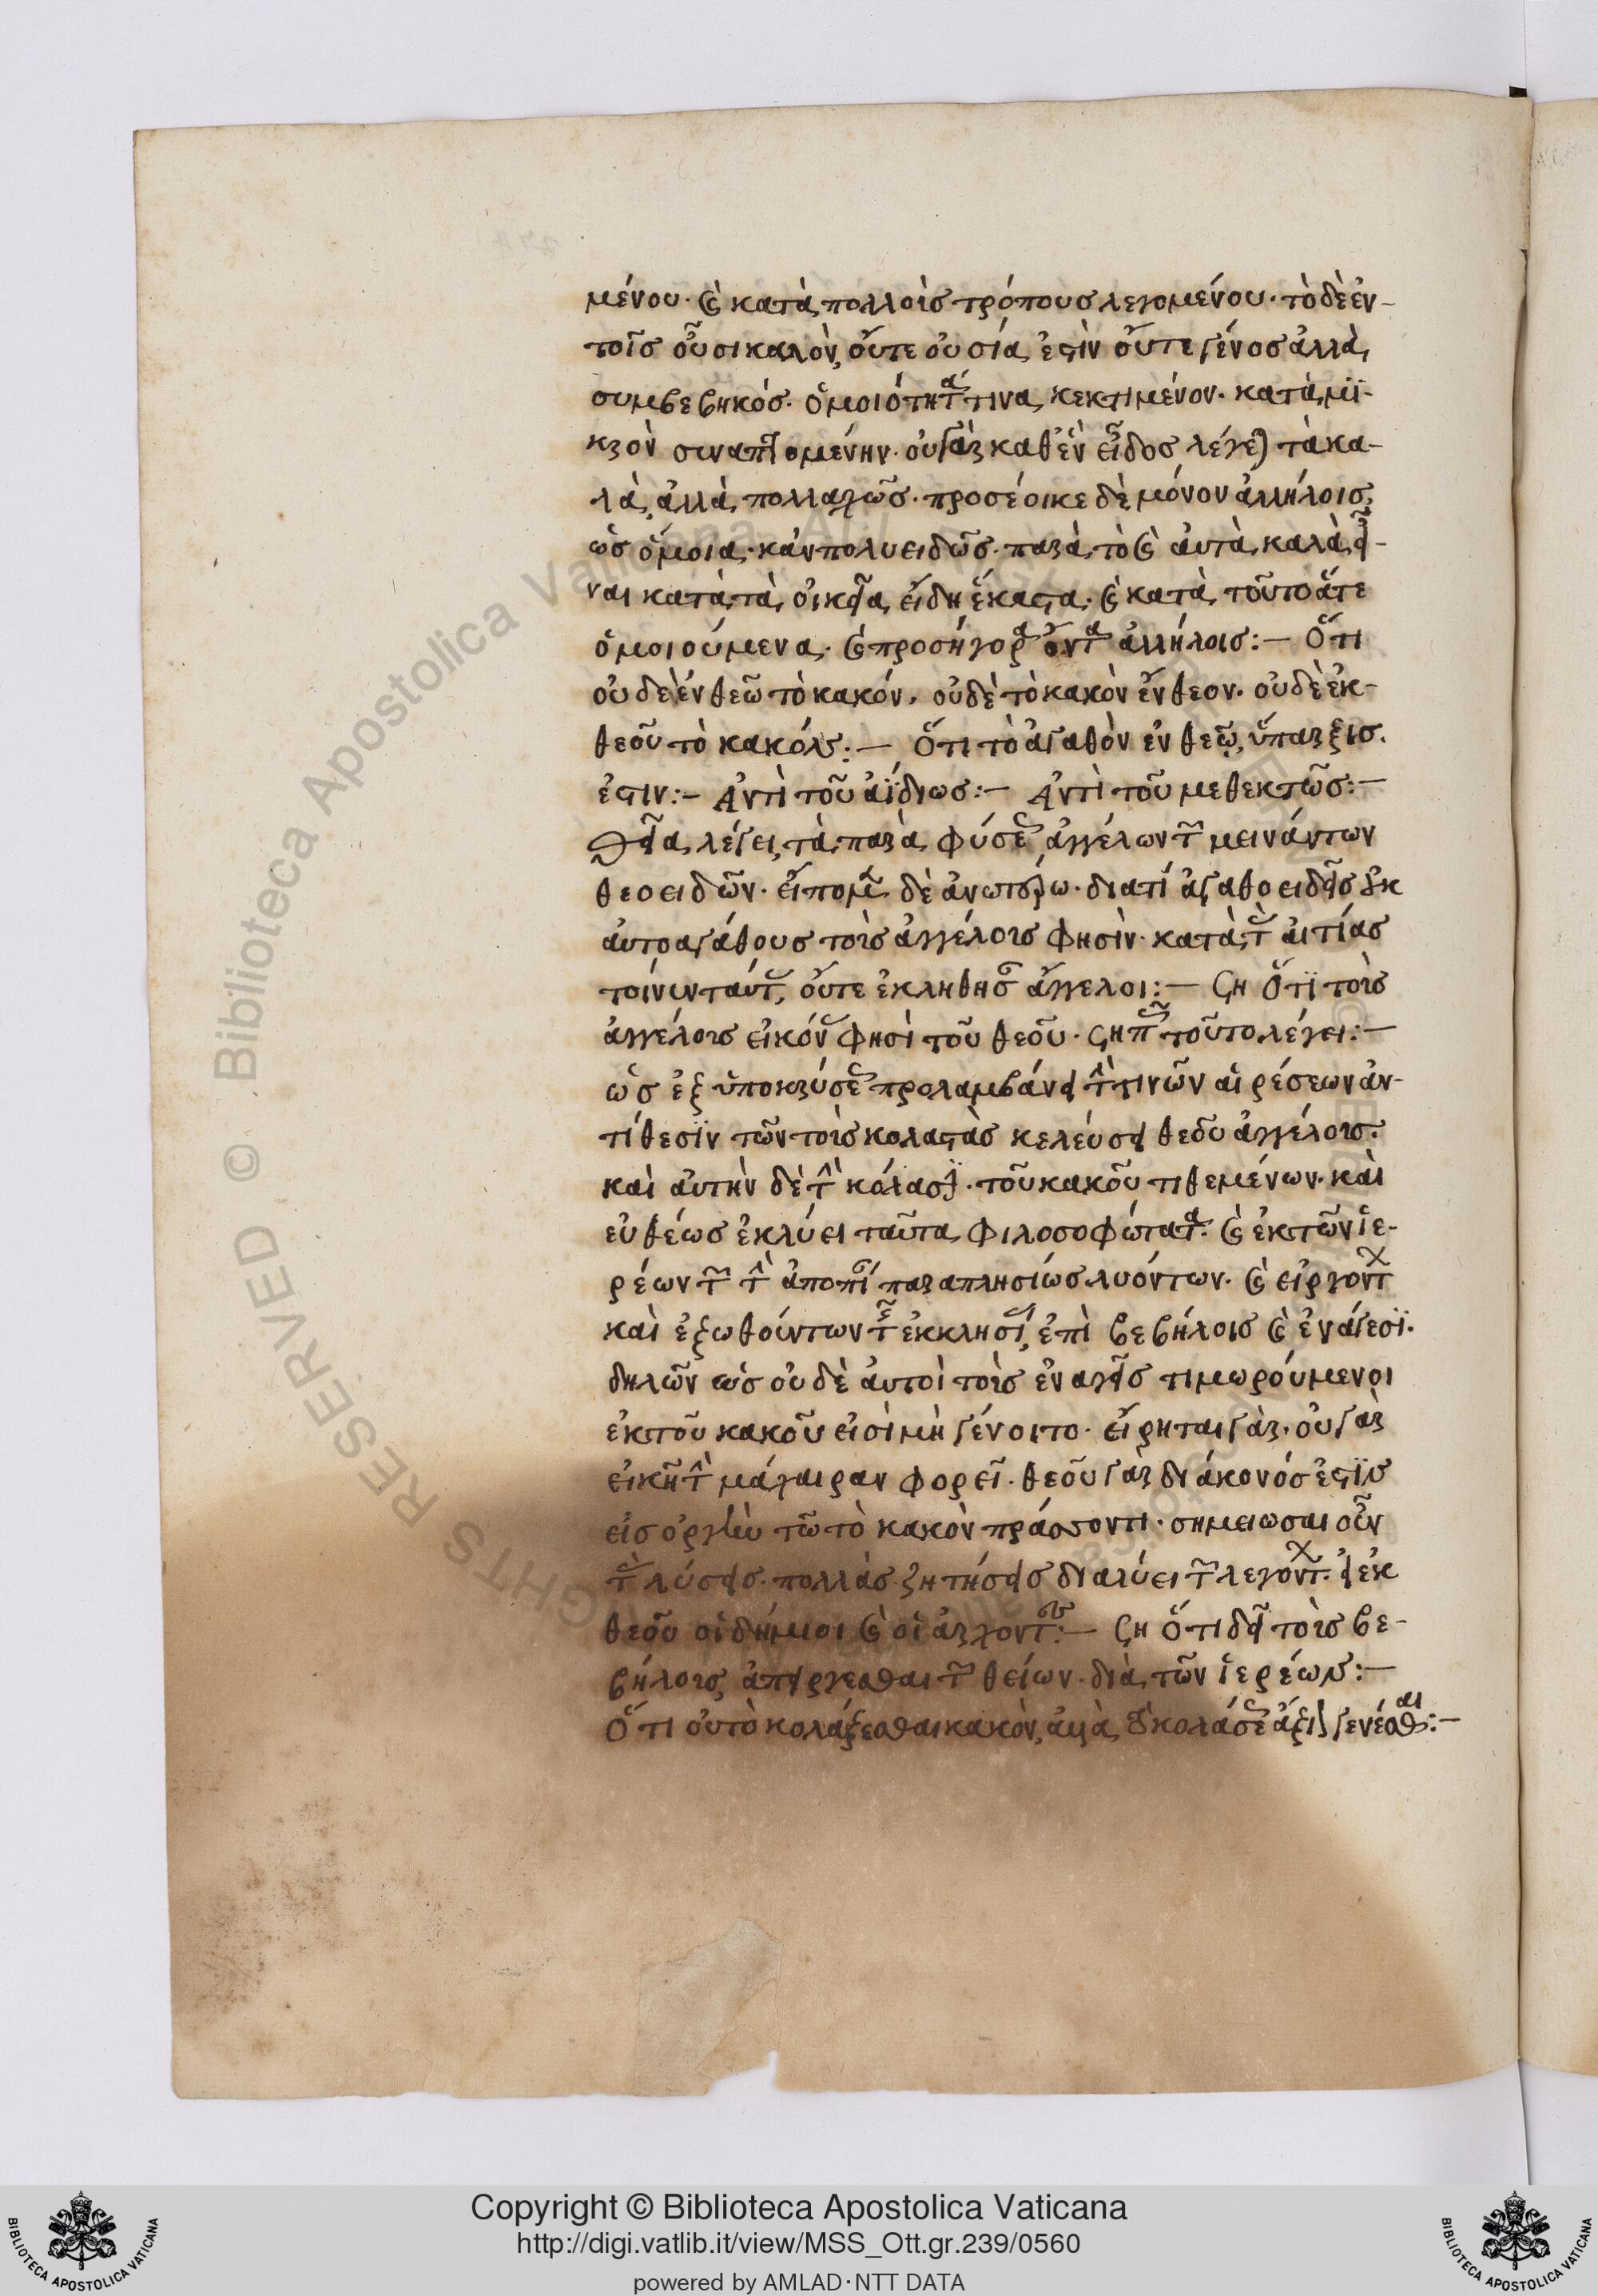 μένου· καὶ κατὰ πολλοὺς τρόπους λεγομένου· τὸ δὲ ἐν-
τοῖς οὖσι καλὸν, οὔτε οὐσία ἐστὶν οὔτε γένος ἀλλὰ
συμβεβηκός· ὁμοιότητά τινα κεκτιμένον· κατὰ μι-
κρὸν συναπτομένην· οὐ γὰρ καθ ἓν εἶδος λέγεται τὰ κα-
λὰ, ἀλλὰ πολλαχῶς· προσέοικε δὲ μόνον ἀλλήλοις,
ὡς ὅμοια· κἀν πολυειδῶς· παρὰ τὸ καὶ αὐτὰ καλὰ εἶ-
ναι κατὰ τὰ οἰκεῖα εἴδη ἕκαστα· καὶ κατὰ τοῦτο ἅτε
ὁμοιούμενα· καὶ προσήγορα ὄντα ἀλλήλοις:— Ὅτι
οὐδὲ ἐν θεῶ τὸ κακόν, οὐδὲ τὸ κακὸν ἔνθεον· οὐδὲ ἐκ-
θεοῦ τὸ κακόν:— Ὅτι τὸ ἀγαθὸν ἐν θεῷ, ὕπαρξις
ἐστιν:— Ἀντὶ τοῦ ἀϊδίως:— Ἀντὶ τοῦ μεθεκτῶς:—
Θεῖα λέγει, τὰ παρὰ φύσεως ἀγγέλων τῶν μεινάντων
θεοειδῶν· εἴπομεν δὲ ἀνωτέρω· διατί ἀγαθοειδεῖς οὐκ
αὐτοαγάθους τοὺς ἀγγέλους φησὶν· κατὰ τὰς αἰτίας
τοίνυν ταύτας, οὔτε ἐκλήθησαν ἄγγελοι:— Ση Ὅτι τοὺς
ἀγγέλους εἰκόνας φησὶ τοῦ θεοῦ· ση πῶς τοῦτο λέγει:—
ὡς ἐξ ὑποκρύσεως προλαμβάνει τὴν τινῶν αἱρέσεων ἀν-
τίθεσιν τῶν τοὺς κολαστὰς κελεύσει θεοῦ ἀγγέλους·
καὶ αὐτὴν δὲ τὴν κόλασιν· τοῦ κακοῦ τιθεμένων· καὶ
εὐθέως ἐκλύει ταῦτα φιλοσοφώτατα· καὶ ἐκ τῶν ἱε-
ρέων τῶν τὴν ἀπο παραπλησίως λυόντων· καὶ εἰργόντων
καὶ ἐξωθούντων τῆς ἐκκλησίας, ἐπὶ βεβήλοις καὶ ἐναγέσι·
δηλῶν ὡς οὐδὲ αὐτοὶ τοὺς ἐναγεῖς τιμωρούμενοι
ἐκ τοῦ κακοῦ εἰσὶ μὴ γένοιτο· εἴρηται γὰρ· οὐ γὰρ
εἰκῆ τὴν μάχαιραν φορεῖ· θεοῦ γὰρ διάκονός ἐστιν
εἰς ὀργὴν τῶ τὸ κακὸν πράσσοντι· σημειωσαι οὖν
τὰς λύσεις· πολλὰς ζητήσεις διαλύει τῶν λεγόντων· εἰ ἐκ
θεοῦ οἱ δήμιοι καὶ οἱ ἄρχοντες:— Ση Ὅτι δεῖ τοὺς βε-
βήλους, ἀπείργεσθαι τῶν θείων· διὰ τῶν ἱερέων:—
Ὅτι οὐ τὸ κολάζεσθαι κακὸν, ἀλλὰ τὸ κολάσεως ἄξιον γενέσθαι:—
Copyright © Biblioteca Apostolica Vaticana
http://digi.vatlib.it/view/MSS_Ott.gr.239/0560
powered by AMLAD·NTT DATA
BIBLIOTECA APOSTOLICA VATICANA
BIBLIOTECA APOSTOLICA VATICANA